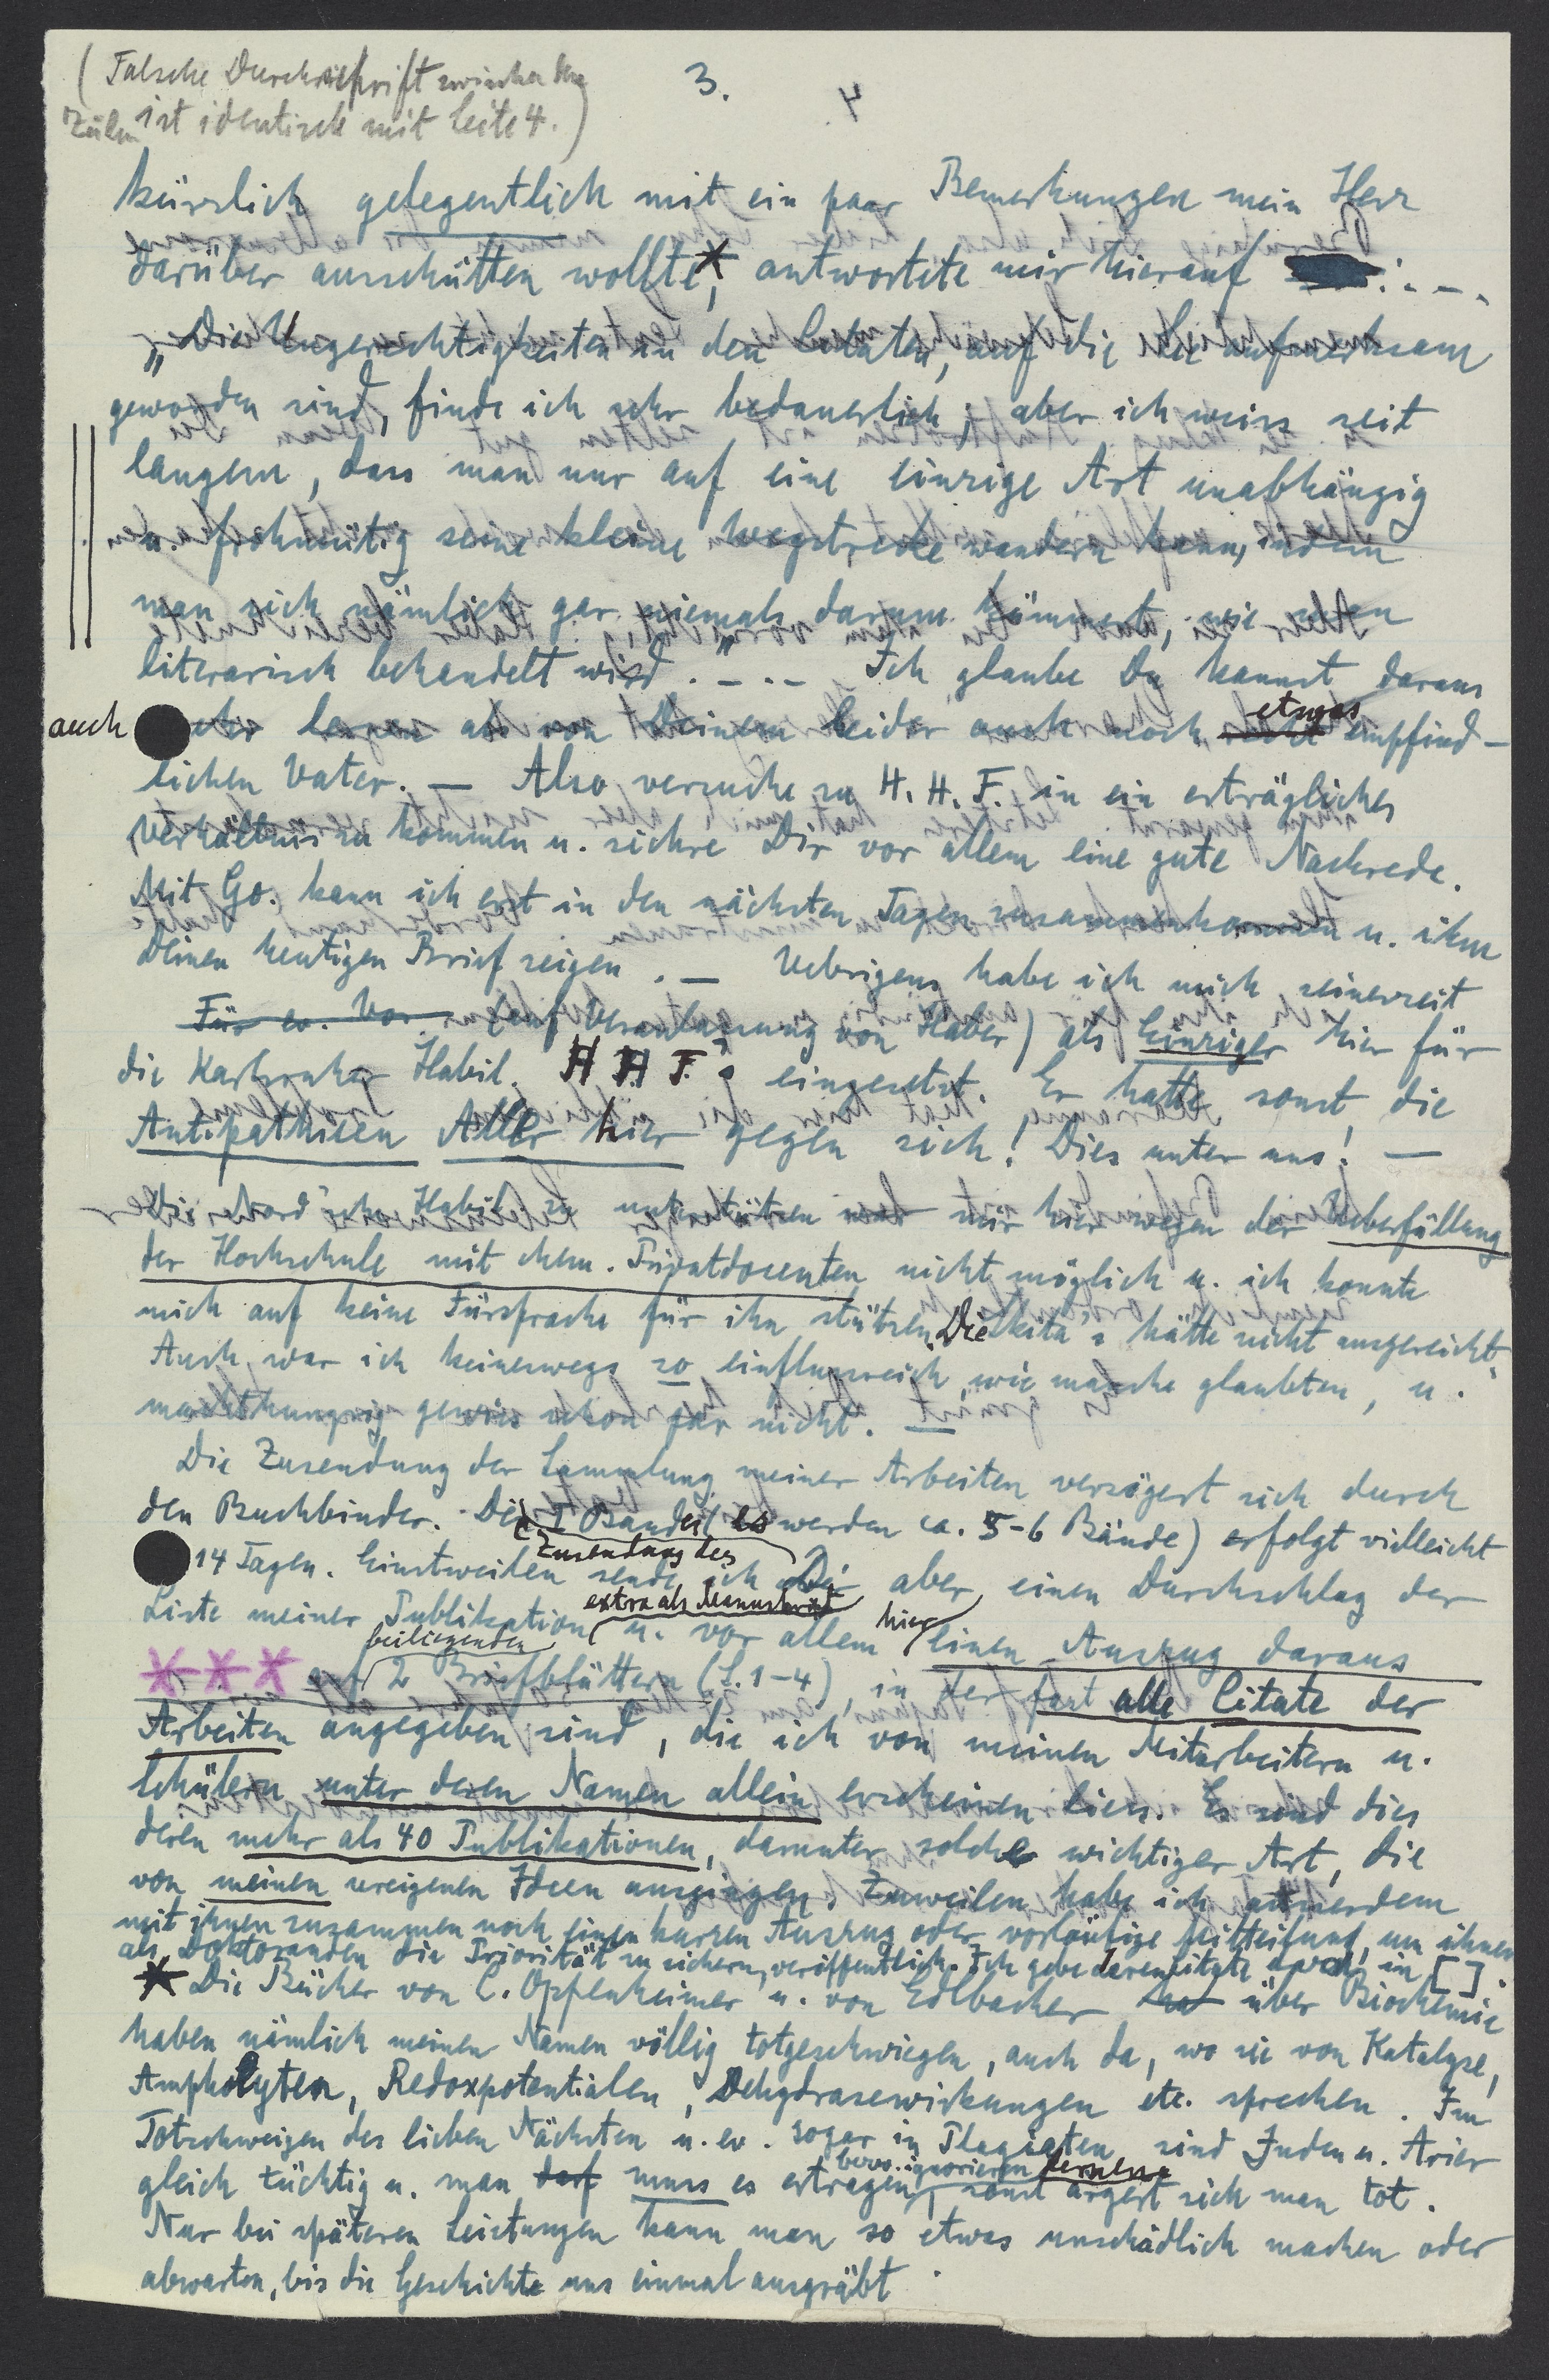 (Falsche Durchschrift zwischen den
Zeilen ist identisch mit Seite 4.)
3.
4
kürzlich gelegentlich mit ein paar Bemerkungen mein Herz
darüber ausschütten wollte*, antwortete mir hierauf : . – .
„Die Ungerechtigkeiten in den Citaten, auf die Sie aufmerksam
geworden sind, finde ich sehr bedauerlich; aber ich weiss seit
langem, dass man nur auf eine einzige Art unabhängig
u. frohmütig seine kleine Wegstrecke wandern kann, indem
man sich nämlich gar niemals darum kümmert, wie man
literarisch behandelt wird." – . – Ich glaube Du kannst daraus
auch lernen als von Deinem leider auch noch etwas empfind-
lichen Vater. — Also versuche zu H. H. F. in ein erträgliches
Verhältnis zu kommen u. sichre Dir vor allem eine gute Nachrede.
Mit Go. kann ich erst in den nächsten Tagen zusammenkommen u. ihm
Deinen heutigen Brief zeigen. — Uebrigens habe ich mich seinerzeit
Für ev. Vor (auf Veranlassung von Haber) als Einziger hier für
die Karlsruher Habil. H H F's eingesetzt. Er hatte sonst die
Antipathieen Aller hier gegen sich! Dies unter uns! —
Die Nord'sche Habil. zu unterstützen war mir hier wegen der Ueberfüllung
der Hochschule mit chem. Privatdocenten nicht möglich u. ich konnte
mich auf keine Fürsprache für ihn stützen. Die Ikita's hätte nicht ausgereicht.
Auch war ich keineswegs so einflussreich, wie manche glaubten, u.
machthungrig gewiss schon gar nicht. —
Die Zusendung der Sammlung meiner Arbeiten verzögert sich durch
den Buchbinder. Die I Bandes (es werden ca. 5-6 Bände) erfolgt vielleicht
Zusendung des
14 Tagen. Einstweilen sende ich Dir aber einen Durchschlag der
extra als Manuskript
Liste meiner Publikation u. vor allem hier einen Auszug daraus
beiliegenden
*** auf 2 Briefblättern (S. 1–4), in der fast alle Citate der
Arbeiten angegeben sind, die ich von meinen Mitarbeitern u.
Schülern unter deren Namen allein erscheinen liess. Es sind dies
deren mehr als 40 Publikationen, darunter solche wichtiger Art, die
von meinen ureigenen Ideen ausgingen. Zuweilen habe ich ausserdem
mit ihnen zusammen noch einen kurzen Auszug oder vorläufige Mitteilung, um ihnen
als Doktoranden die Priorität zu sichern, veröffentlicht. Ich gebe deren Citate auch in [ ].
* Die Bücher von C. Oppenheimer u. von Edlbacher über Biochemie
haben nämlich meinen Namen völlig totgeschwiegen, auch da, wo sie von Katalyse,
Ampholyten, Redoxpotentialen, Dehydrasewirkungen etc. sprechen. Im
Totschweigen des lieben Nächsten u. ev. sogar in Plagiaten sind Juden u. Arier
gleich tüchtig u. man darf muss es ertragen bezw. ignorieren lernen, sonst ärgert sich man tot.
Nur bei späteren Leistungen kann man so etwas unschädlich machen oder
abwarten, bis die Geschichte uns einmal ausgräbt.